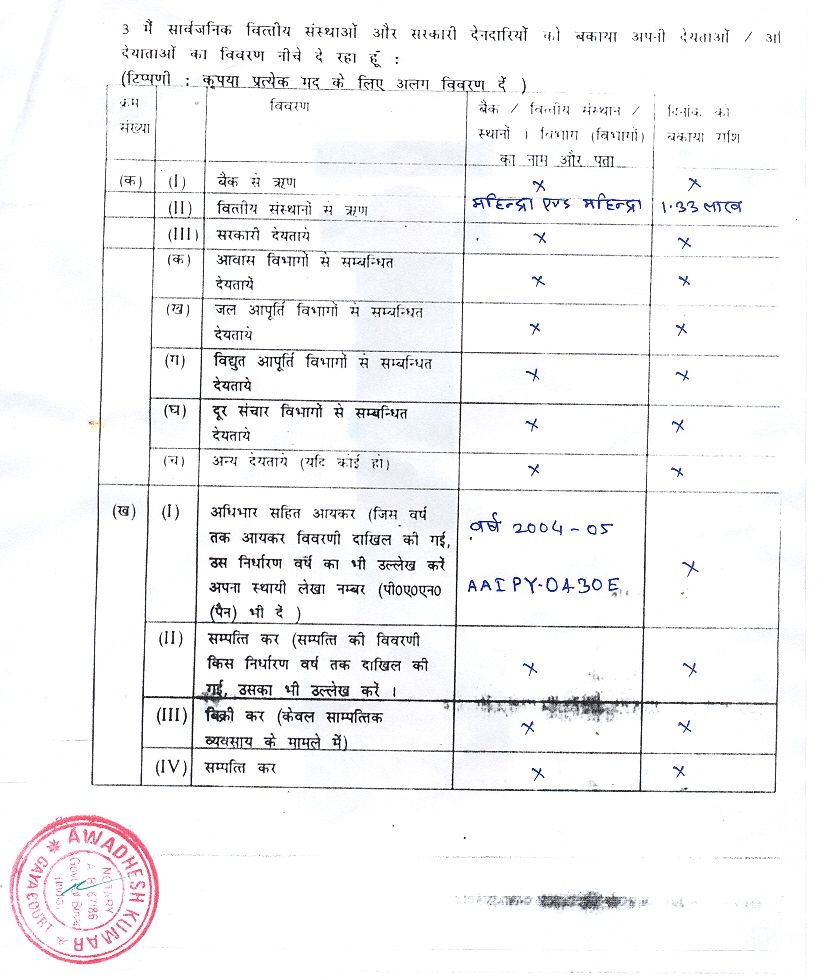 3 मैं सार्वजनिक वित्तीय संस्थाओं और सरकारी देनदारियों को बकाया अपनी देयताओं / अ
देयाताओं का विवरण नीचे दे रहा हूँ :
(टिप्पणी : कृपया प्रत्येक मद के लिए अलग विवरण दें )
क्रम संख्या विवरण बैंक / वित्तीय संस्थान / स्थानों । विभाग (विभागों) का नाम और पता दिनांक को बकाया राशि
(क) (I) बैंक से ऋण × ×
(II) वित्तीय संस्थानों से ऋण महिन्द्रा एण्ड महिन्द्रा 1.33 लाख
(III) सरकारी देयताये × ×
(क) आवास विभागों से सम्बन्धित
देयतायें × ×
(ख) जल आपूर्ति विभागों से सम्बन्धित
देयताये × ×
(ग) विद्युत आपूर्ति विभागों से सम्बन्धित
देयताये × ×
(घ) दूर संचार विभागों से सम्बन्धित
देयताये × ×
(च) अन्य देयताये (यदि कोई हो) × ×
(ख) (I) अधिभार सहित आयकर (जिस वर्ष
तक आयकर विवरणी दाखिल की गई,
उस निर्धारण वर्ष का भी उल्लेख करें
अपना स्थायी लेखा नम्बर (पी0ए0एन0
(पैन) भी दें )
वर्ष 2004-05
AAIPY-0430E ×
(II) सम्पत्ति कर (सम्पत्ति की विवरणी
किस निर्धारण वर्ष तक दाखिल की
गई, उसका भी उल्लेख करें । × ×
(III) बिक्री कर (केवल साम्पत्तिक
व्यवसाय के मामले में) × ×
(IV) सम्पत्ति कर × ×
AWADHESH KUMAR
GAYA COURT
NOTARY